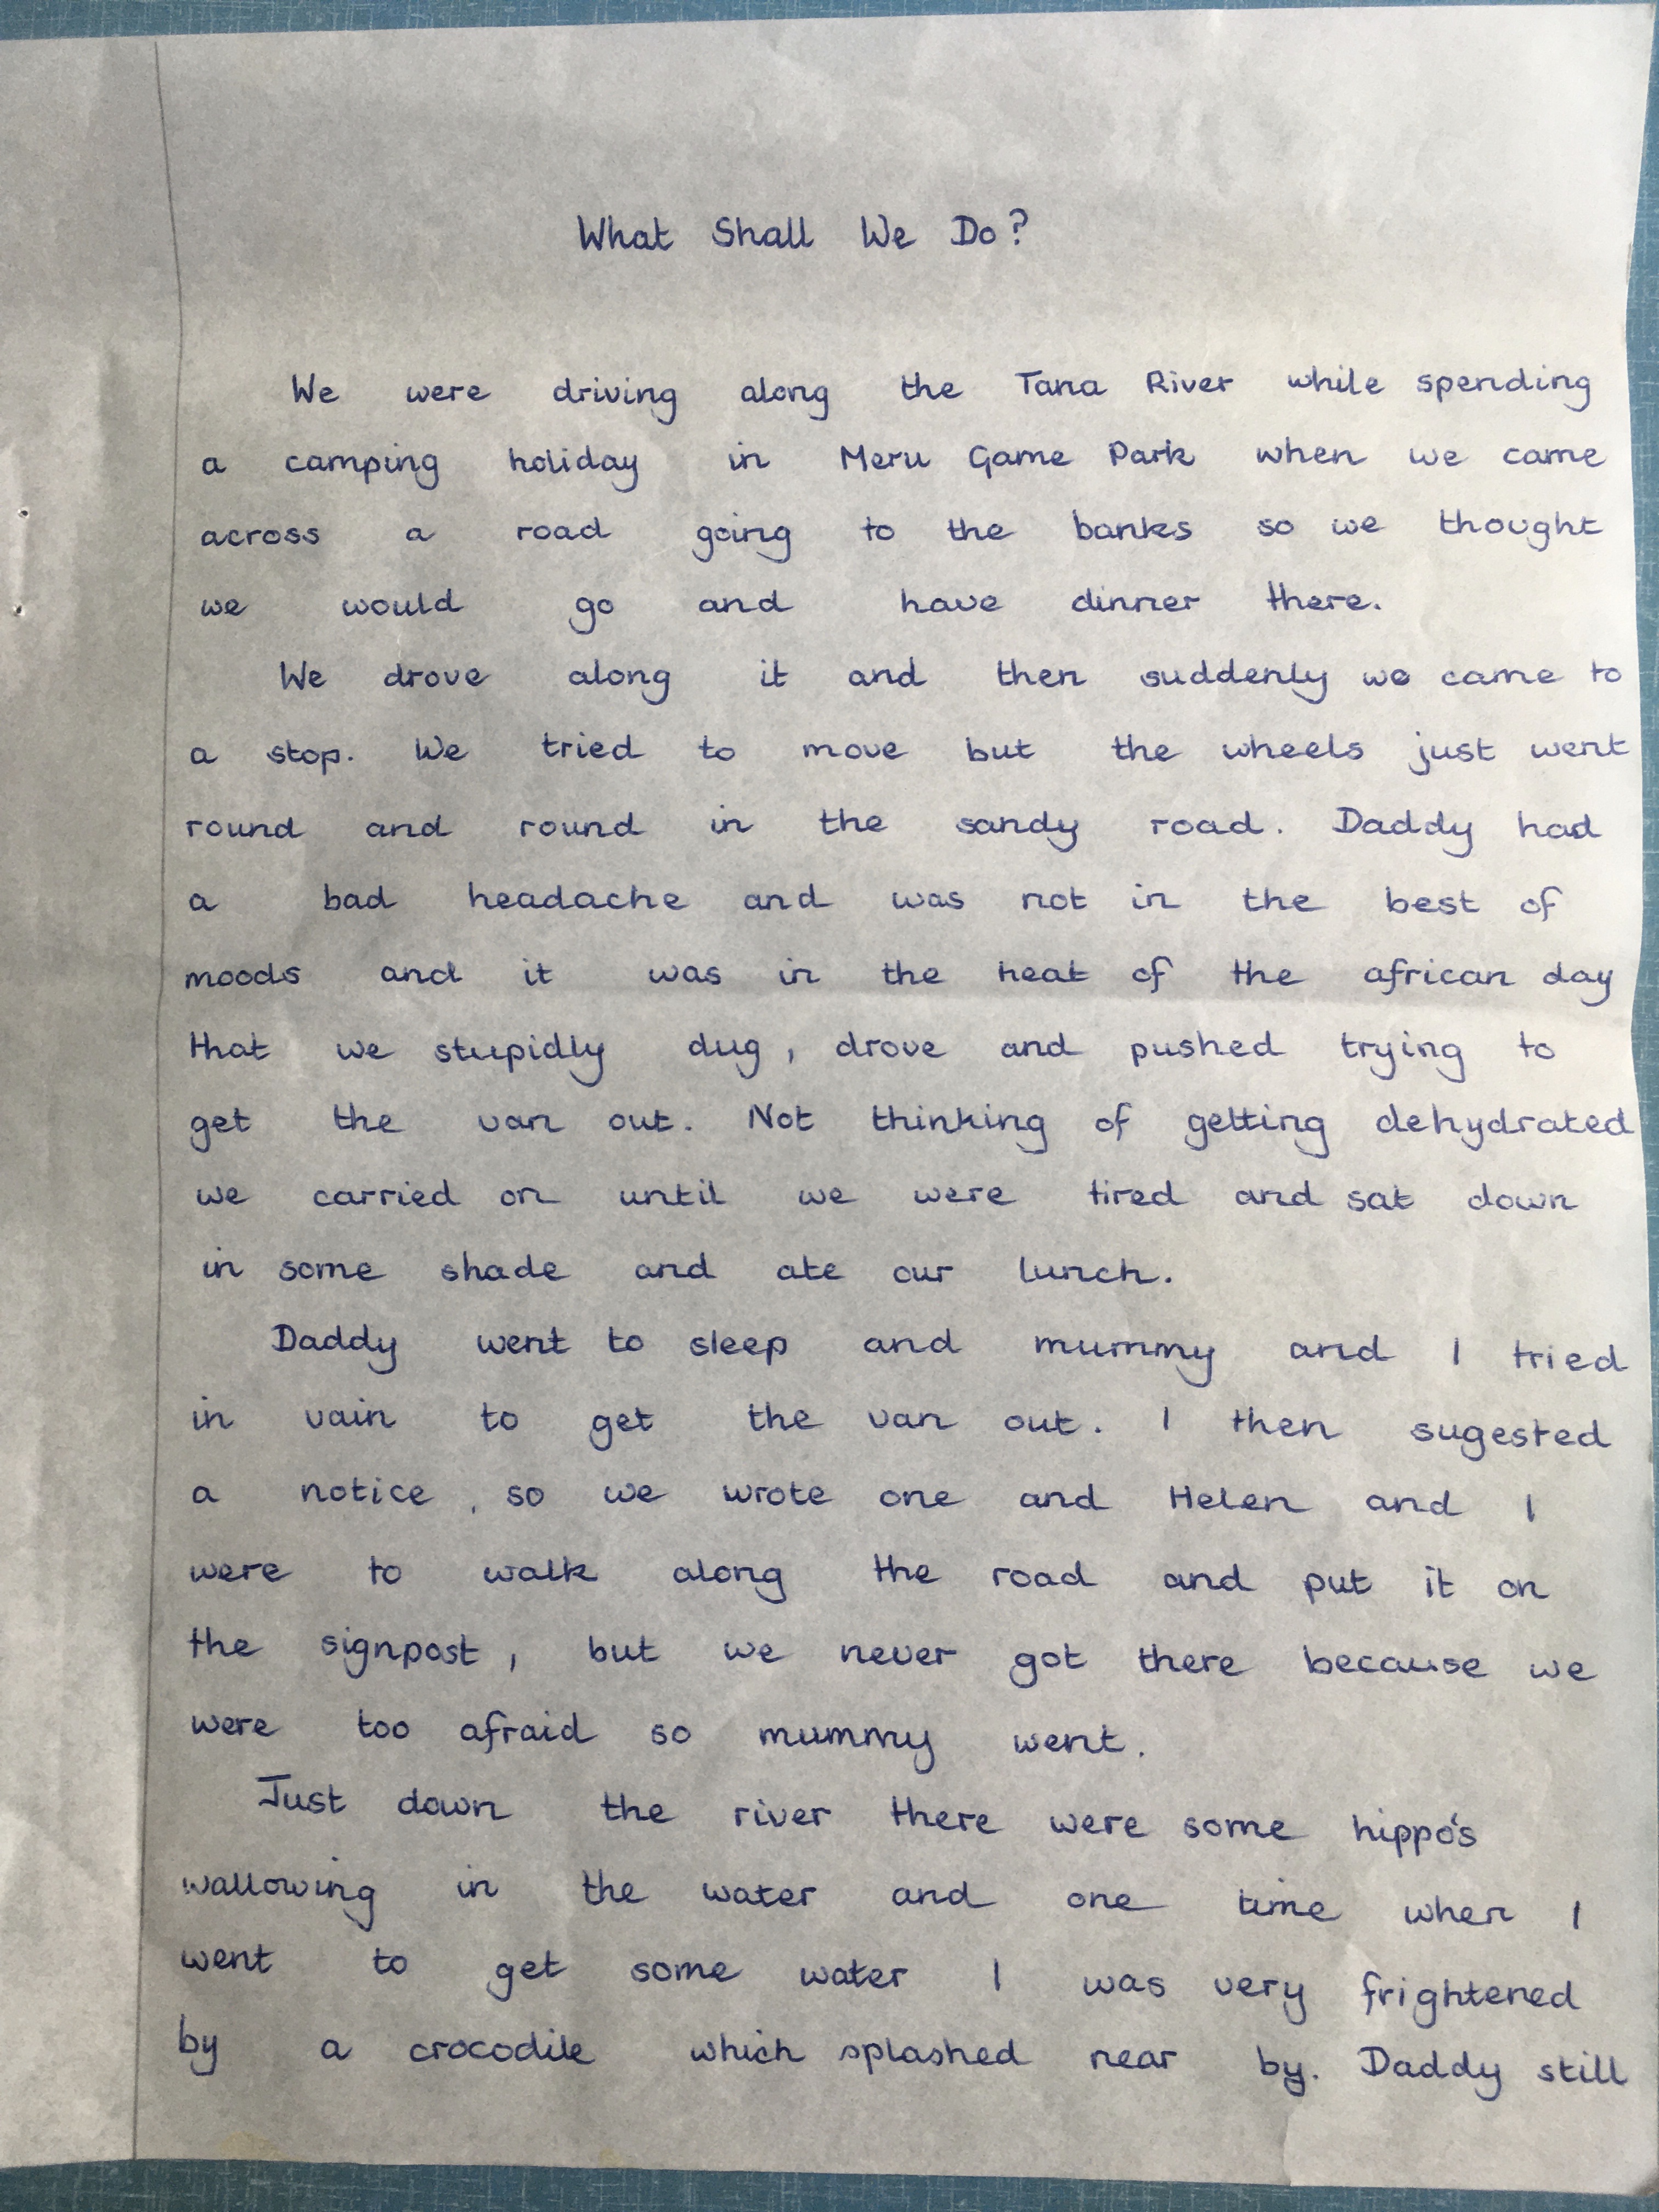 What Shall We Do?
We were driving along the Tana River while spending
a camping holiday in Meru Game Park when we came
across a road going to the banks so we thought
we would go and have dinner there.
We drove along it and then suddenly we came to
a stop. We tried to move but the wheels just went
round and round in the sandy road. Daddy had
a bad headache and was not in the best of
moods and it was in the heat of the african day
that we stupidly dug, drove and pushed trying to
get the van out. Not thinking of getting dehydrated
we carried on until we were tired and sat down
in some shade and ate our lunch.
Daddy went to sleep and mummy and I tried
in vain to get the van out. I then sugested
a notice, so we wrote one and Helen and I
were to walk along the road and put it on
the signpost, but we never got there because we
were too afraid so mummy went.
Just down the river there were some hippo's
wallowing in the water and one time when I
went to get some water I was very frightened
by a crocodile which splashed near by. Daddy still